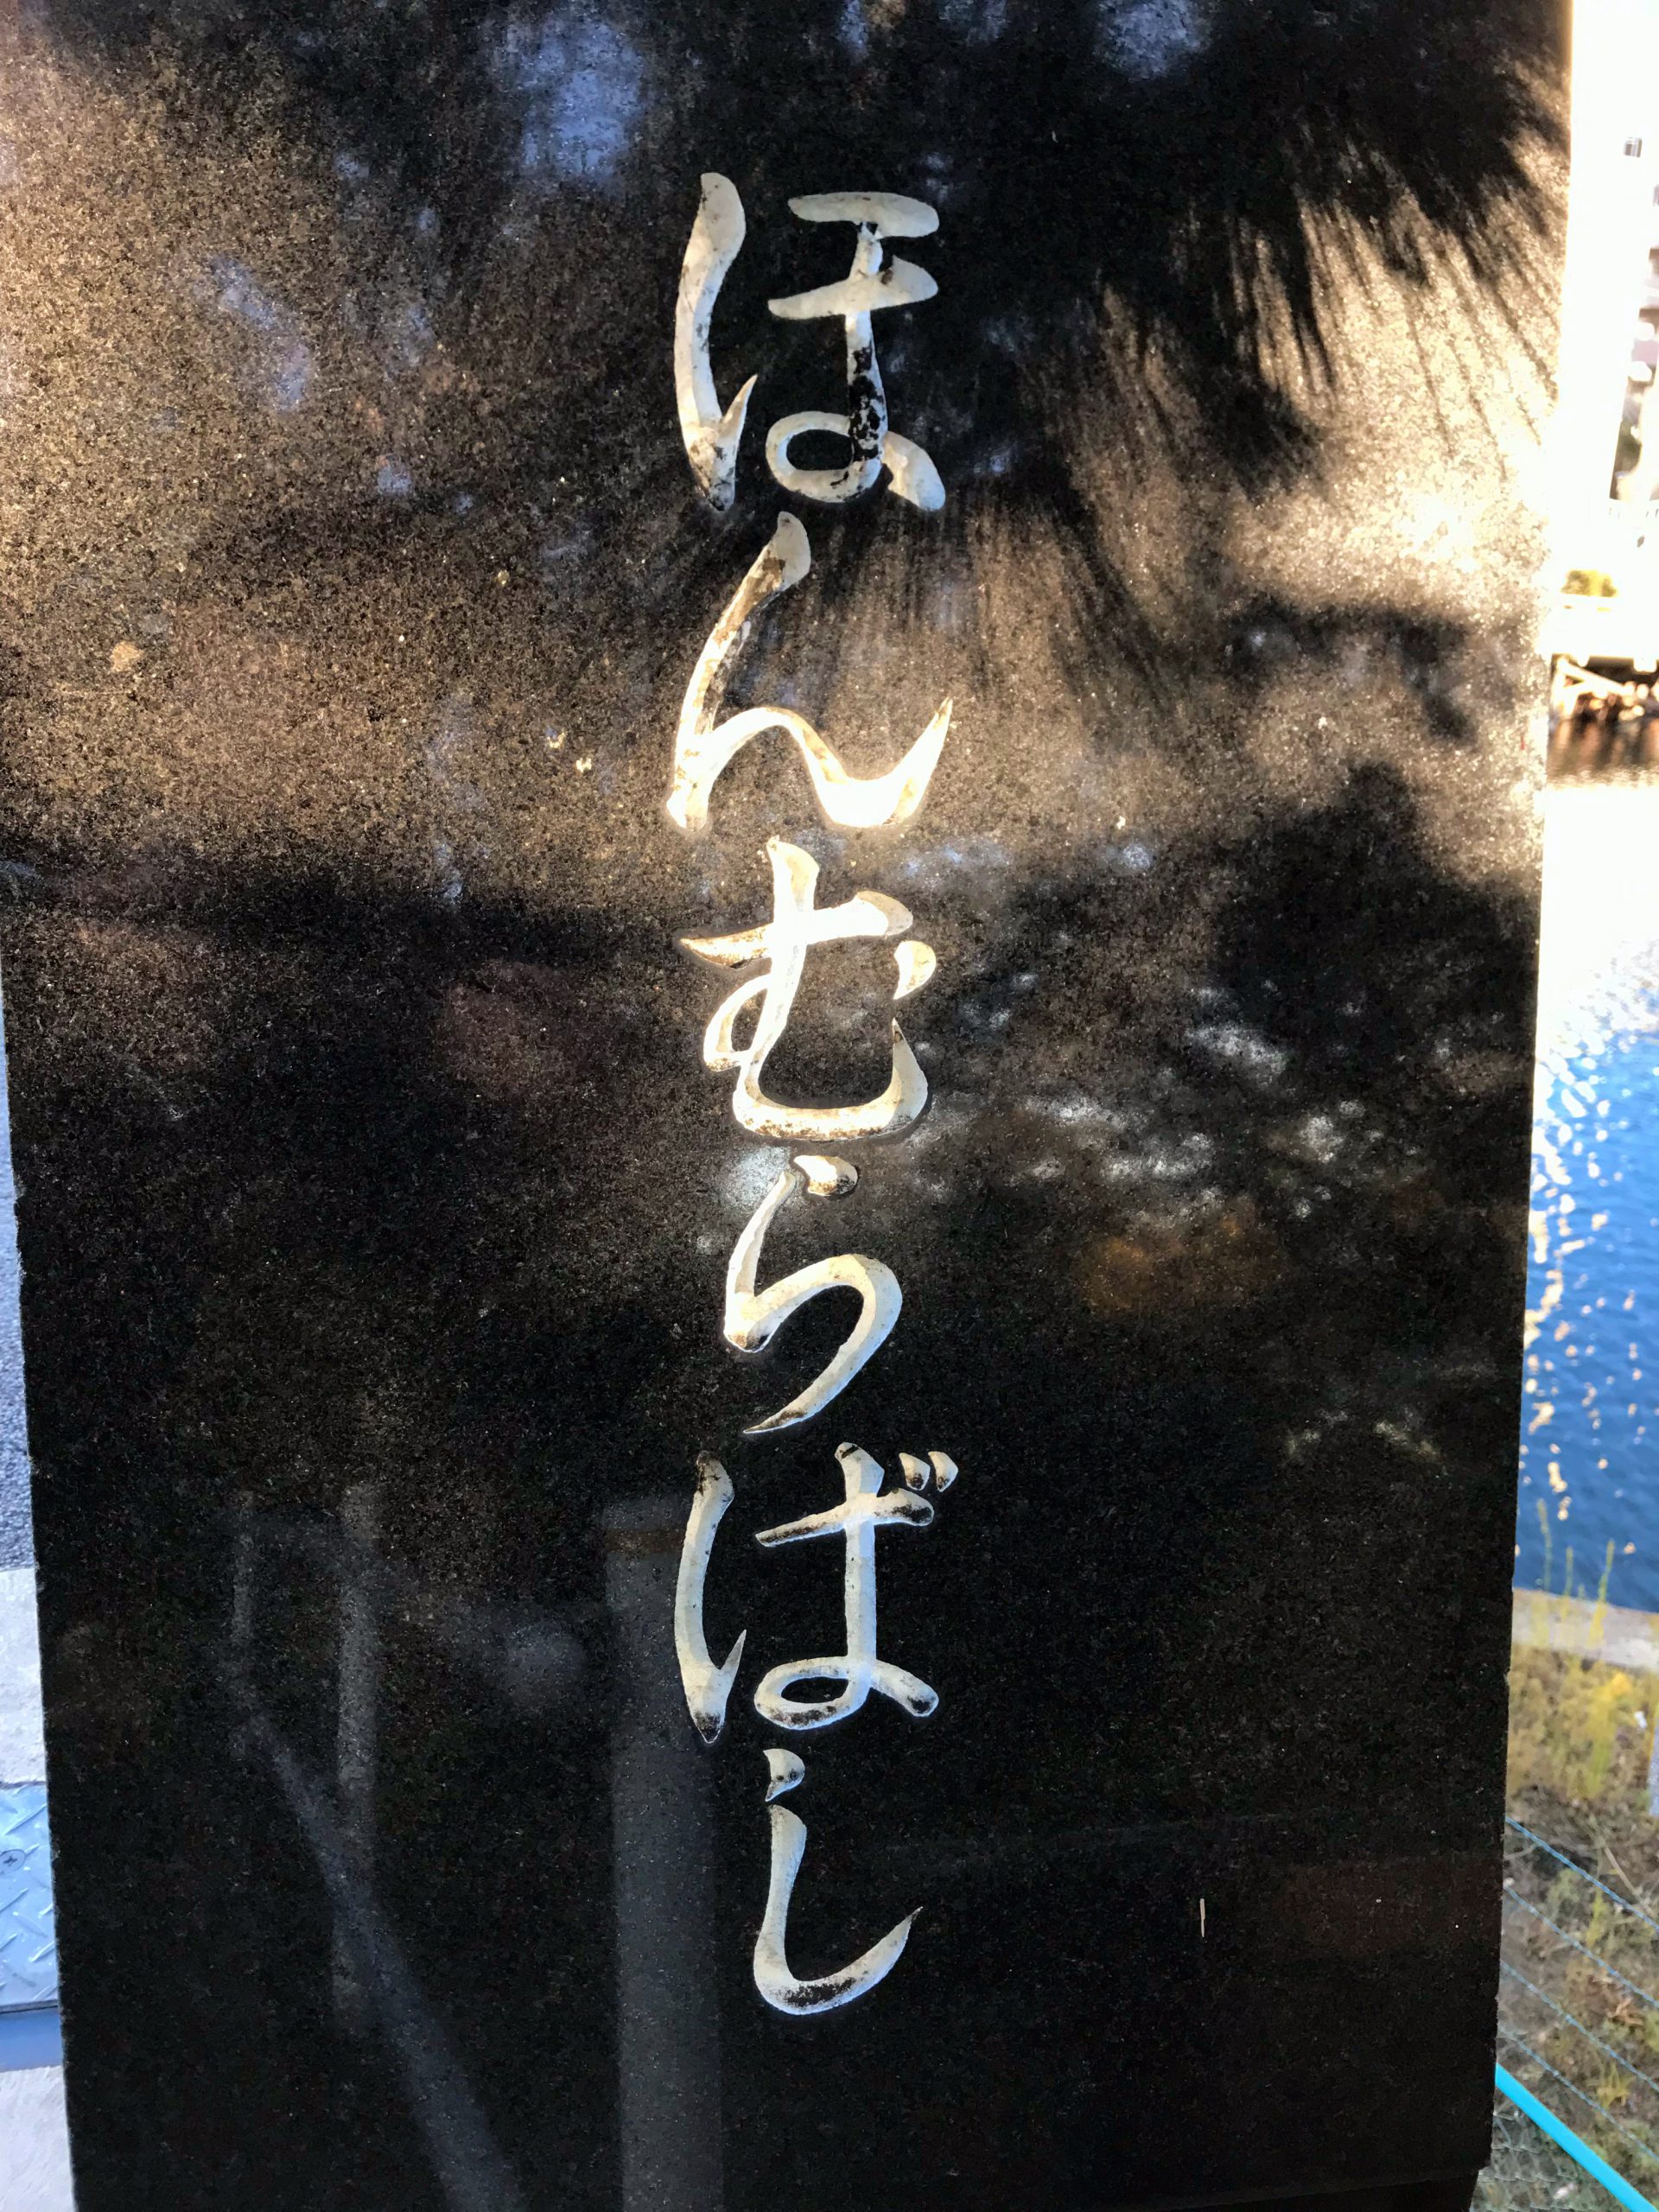 ほんむらばし